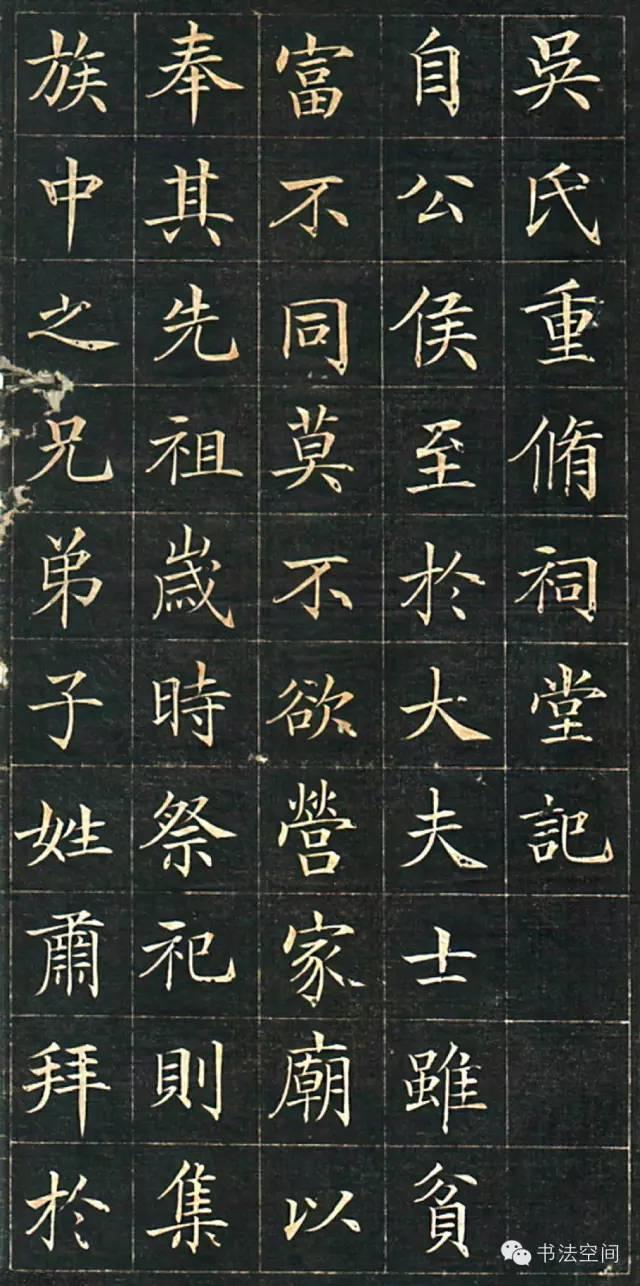 吳氏重脩祠堂記
自公侯至於大夫士雖貧
富不同莫不欲營家廟以
奉其先祖歲時祭祀則集
族中之兄弟子姓肅拜於
书法空间